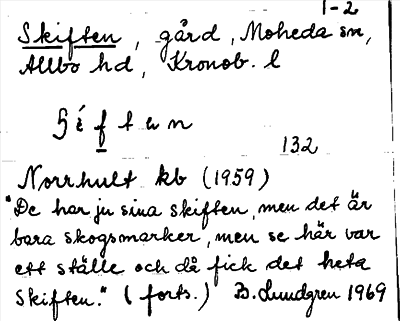 1-2
Skiften, gård, Moheda sn,
Allbo hd, Kronob. l
132
Norrhult kb (1959)
"De har ju sina skiften, men det är
bara skogsmarker, men se här var
ett ställe och då fick det heta
Skiften." (forts.) B. Lundgren 1969